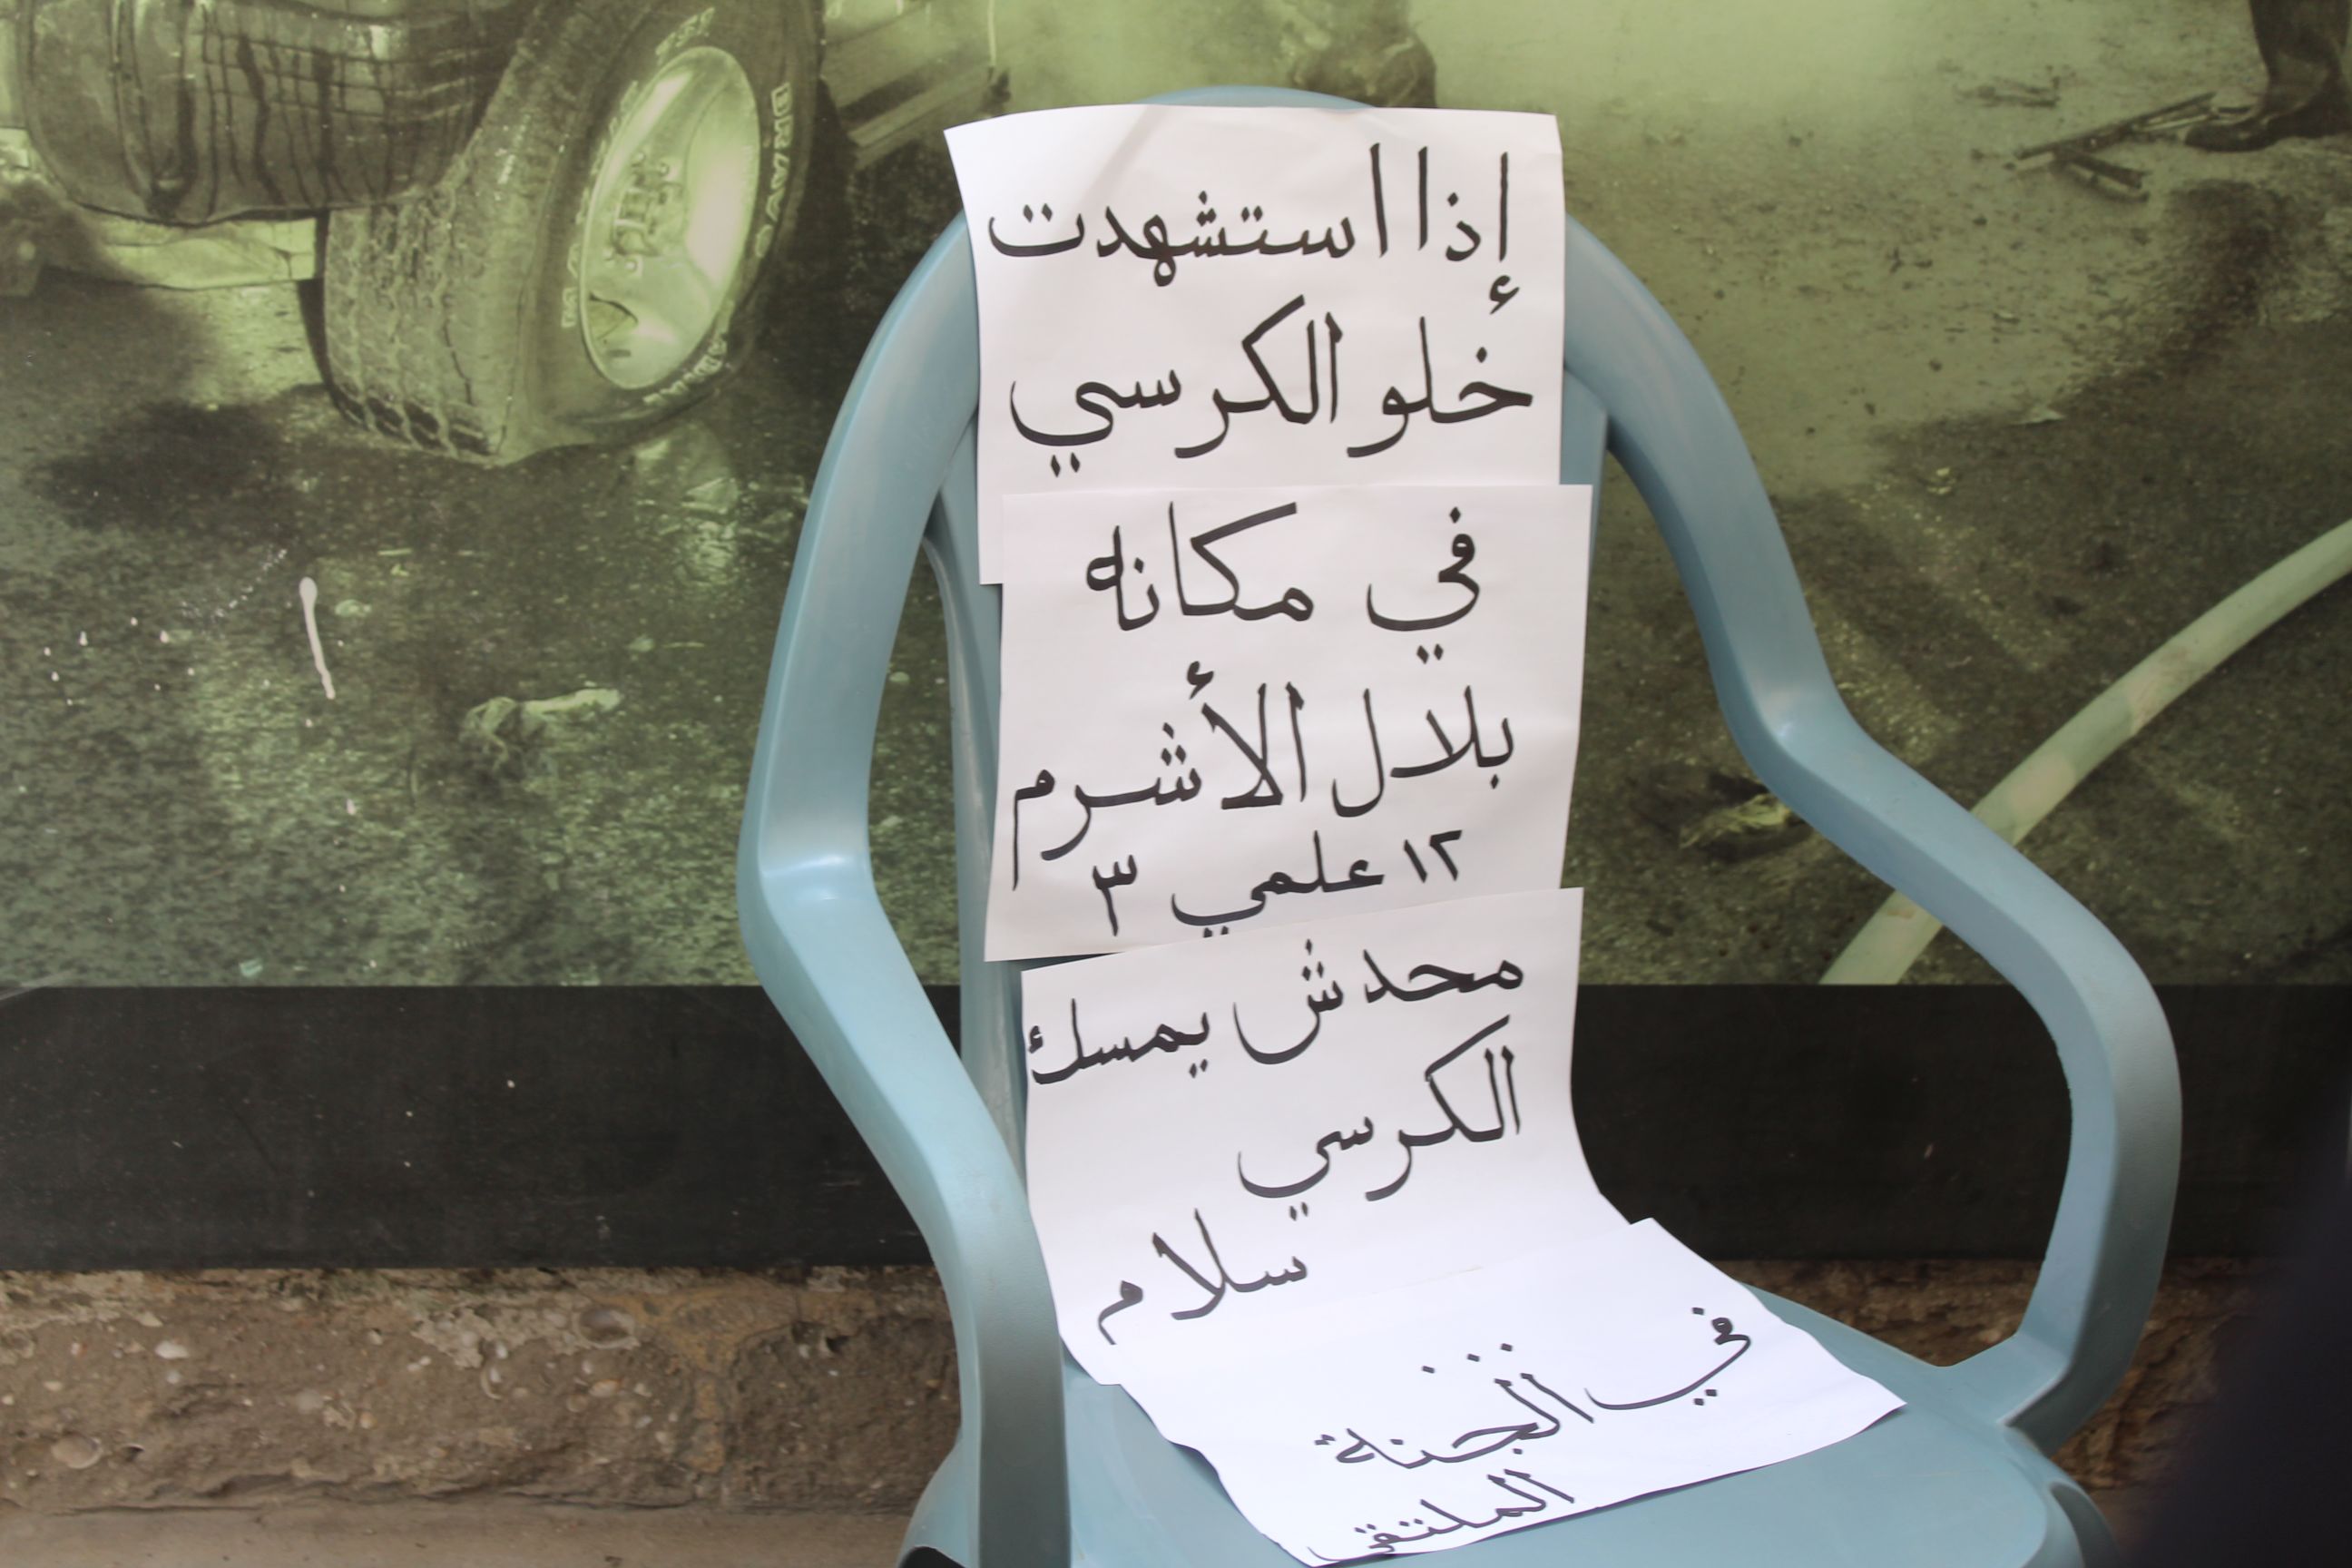 إذا استشهدت
خلو الكرسي
في مكانه
بلال الأشرم
١٢ علمي ٣
محدش يمسك
الكرسي
سلام
في الجنة
الملتقى